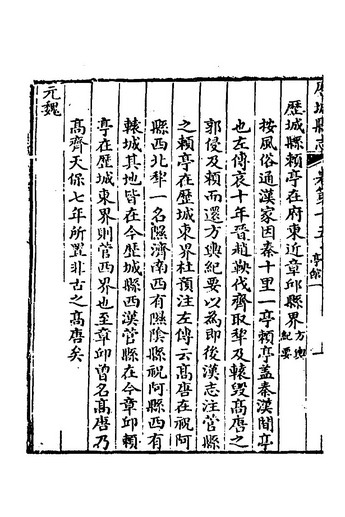 歷城縣志 卷第十五 亭館 一
歷城縣賴亭在府東近章邱縣界方輿紀要
按風俗通漢家因秦十里一亭賴亭蓋秦漢間亭
也左傳哀十年晉趙鞅伐齊取犂及轅毀高唐之
郭侵及賴而還方輿紀要以為即後漢志注管縣
之賴亭在歷城東界杜預注左傳云高唐在祝阿
縣西北犂一名隰濟南西有隰陰縣祝阿縣西有
轅城其地皆在今歷城縣西漢管縣在今章邱賴
亭在歷城東界則管西界也至章邱曾名高唐乃
高齊天保七年所置非古之高唐矣
元魏